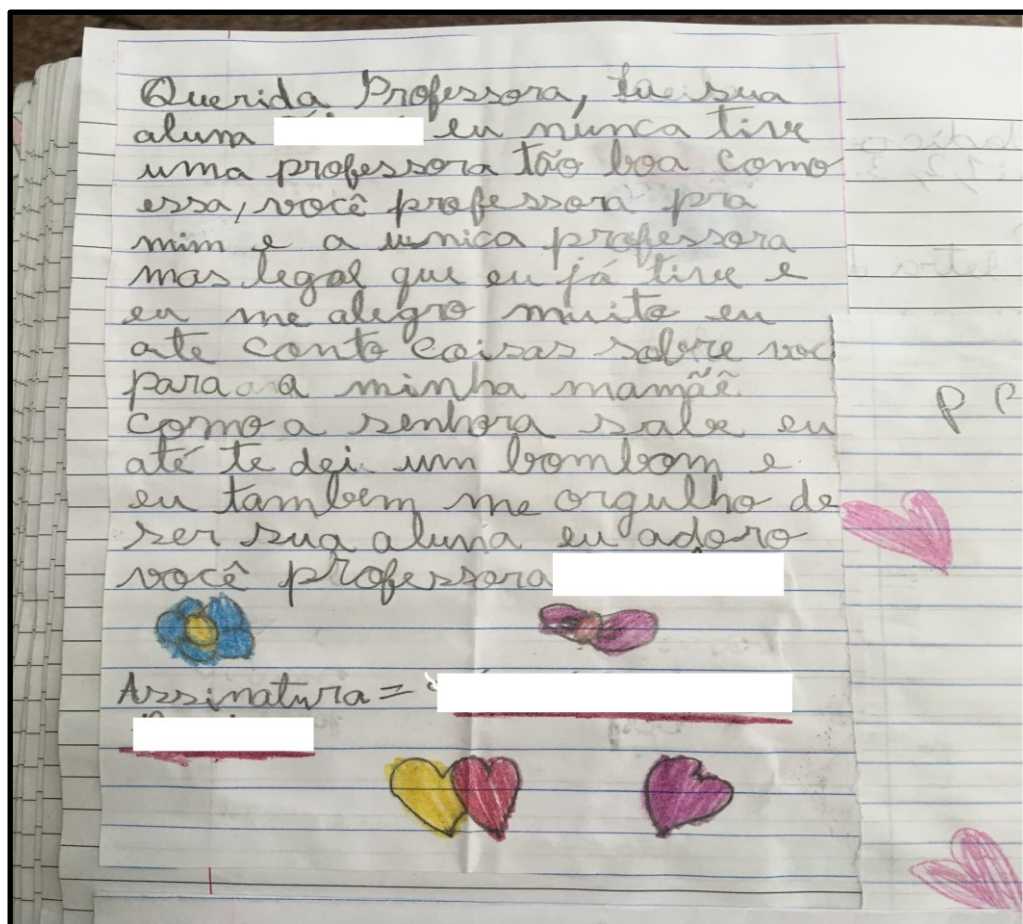 Querida Professora, Eu sua
aluna eu nunca tive
uma professora tão boa como
essa, você professora pra
mim e a unica professora
mas legal que eu já tive e
eu me alegro muito eu
ate conto coisas sobre voc
para a minha mamãe
como a senhora sabe eu
até te dei um bombom e
eu tambem me orgulho de
ser sua aluna eu adoro
você professora
Assinatura =
P P